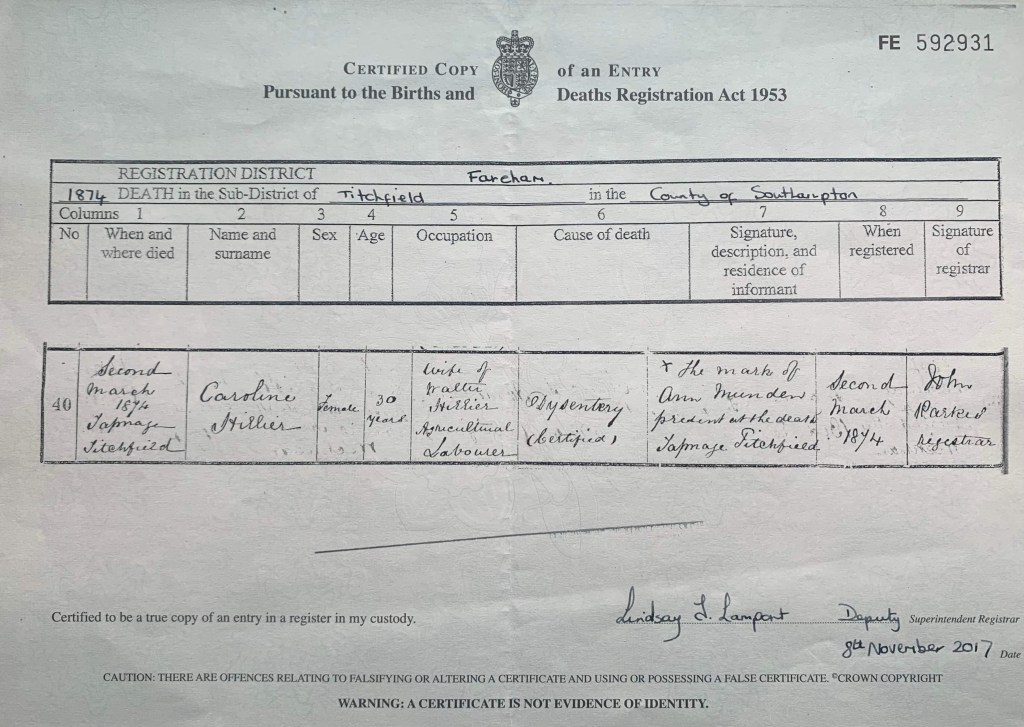 FE 592931
CERTIFIED COPY of an ENTRY
Pursuant to the Births and Deaths Registration Act 1953
REGISTRATION DISTRICT Fareham.
1874 DEATH in the Sub-District of Titchfield in the County of Southampton
Columns 1 2 3 4 5 6 7 8 9
No When and where died Name and surname Sex Age Occupation Cause of death Signature, description, and residence of informant When registered Signature of registrar
40
Second
March
1874
Sapnage
Titchfield
Caroline
Hillier
Female
30
years
Wife of
Walter
Hillier
Agricultural
Labourer
Dysentery
(Certified)
X The mark of
Ann Munden
present at the death
Sapnage Titchfield
Second
March
1874
John
Parker
registrar
Certified to be a true copy of an entry in a register in my custody.
Lindsay J. Lampont Deputy Superintendent Registrar
8th November 2017 Date
CAUTION: THERE ARE OFFENCES RELATING TO FALSIFYING OR ALTERING A CERTIFICATE AND USING OR POSSESSING A FALSE CERTIFICATE. ©CROWN COPYRIGHT
WARNING: A CERTIFICATE IS NOT EVIDENCE OF IDENTITY.